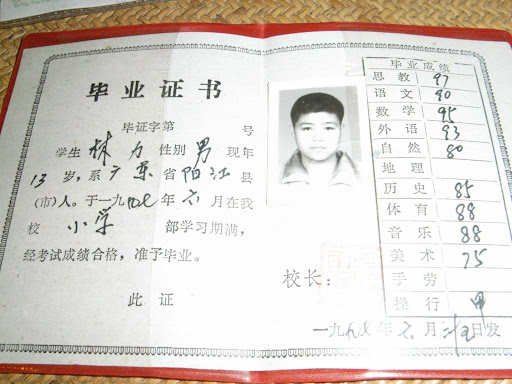 毕业证书
毕证字第 号
学生林力性别男现年
13岁,系广东省阳江县
(市)人。于一九九七年六月在我
校 小学 部学习期满,
经考试成绩合格,准予毕业。
此证
校长:
毕业成绩
思教 97
语文 90
数学 95
外语 93
自然 80
地理
历史 85
体育 88
音乐 88
美术 75
手劳
操行 甲
一九九七年六月 日发